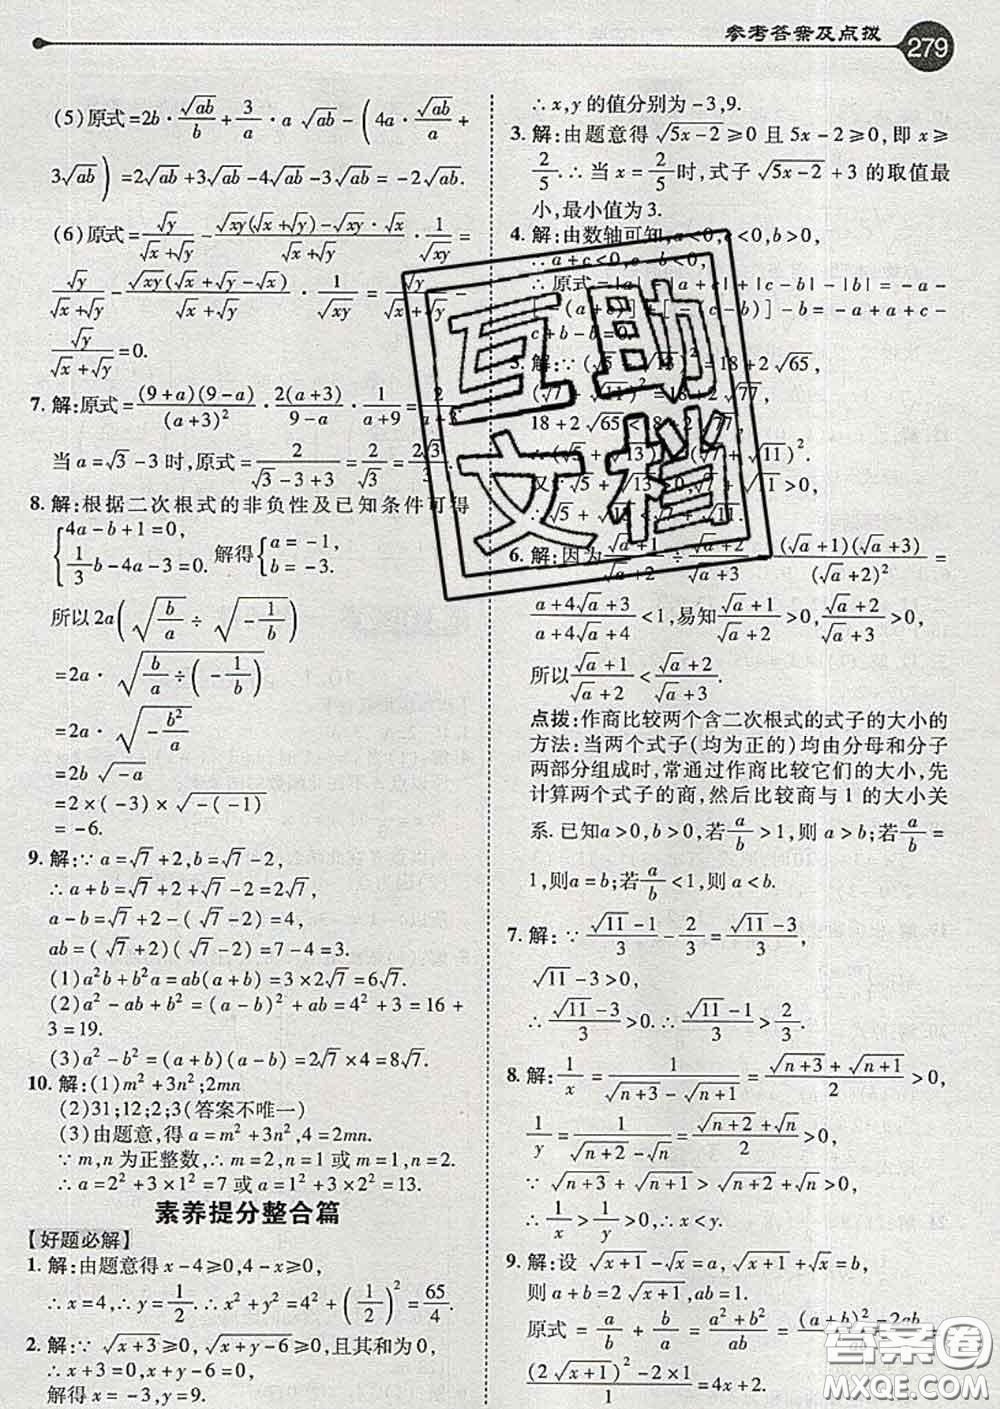 参考答案及点拨 279
(5)原式=2b·√ab/b+3/a·a√ab-(4a·√ab/a+
3√ab)=2√ab+3√ab-4√ab-3√ab=-2√ab.
(6)原式=√y/(√x+√y)-(√xy(√x+√y)-√xy·√x)/(√x+√y)·1/√y=
√y/(√x+√y)-√xy(√x+√y-√x)/(√x+√y)·1/
√y/(√x+√y)=0.
7. 解:原式=(9+a)(9-a)/(a+3)²·2(a+3)/(9-a)·1/(a+9)=2/(a+3).
当a=√3-3时,原式=2/(√3-3+3)=2/√3=2√3/3.
8. 解:根据二次根式的非负性及已知条件可得
{4a-b+1=0, 1/3b-4a-3=0. 解得{a=-1, b=-3.
所以2a(√(b/a)÷√(-1/b))
=2a·√(b/a÷(-1/b))
=2a·√(-b²/a)
=2b√-a
=2×(-3)×√-(-1)
=-6.
9. 解:∵a=√7+2,b=√7-2,
∴a+b=√7+2+√7-2=2√7,
a-b=√7+2-(√7-2)=4,
ab=(√7+2)(√7-2)=7-4=3.
(1)a²b+b²a=ab(a+b)=3×2√7=6√7.
(2)a²-ab+b²=(a-b)²+ab=4²+3=16+
3=19.
(3)a²-b²=(a+b)(a-b)=2√7×4=8√7.
10. 解:(1)m²+3n²;2mn
(2)31;12;2;3(答案不唯一)
(3)由题意,得a=m²+3n²,4=2mn.
∵m,n为正整数,∴m=2,n=1或m=1,n=2.
∴a=2²+3×1²=7或a=1²+3×2²=13.
素养提分整合篇
【好题必解】
1. 解:由题意得x-4≥0,4-x≥0,
∴x=4,∴y=1/2.∴x²+y²=4²+(1/2)²=65/4.
2. 解:∵√x+3≥0,√x+y-6≥0,且其和为0,
∴x+3=0,x+y-6=0,
解得x=-3,y=9.
∴x,y的值分别为-3,9.
3. 解:由题意得√5x-2≥0且5x-2≥0,即x≥
2/5.∴当x=2/5时,式子√5x-2+3的取值最
小,最小值为3.
4. 解:由数轴可知,a<0,c<0,b>0,
∴a+c<0,c-b<0.
∴原式=|a|-|a+c|+|c-b|-|b|=-a-
[-(a+c)]+[-(c-b)]-b=-a+a+c-
c+b-b=0.
5. 解:∵(√5+√13)²=18+2√65,
(√7+√11)²=18+2√77,
18+2√65<18+2√77,
∴(√5+√13)²<(√7+√11)².
又∵√5+√13>0,√7+√11>0,
∴√5+√13<√7+√11.
6. 解:因为(√a+1)/(√a+2)÷(√a+2)/(√a+3)=(√a+1)(√a+3)/(√a+2)²=
(a+4√a+3)/(a+4√a+4)<1,易知(√a+1)/(√a+2)>0,(√a+2)/(√a+3)>0,
所以(√a+1)/(√a+2)<(√a+2)/(√a+3).
点拨:作商比较两个含二次根式的式子的大小的
方法:当两个式子(均为正的)均由分母和分子
两部分组成时,常通过作商比较它们的大小,先
计算两个式子的商,然后比较商与1的大小关
系.已知a>0,b>0,若a/b>1,则a>b;若a/b=
1,则a=b;若a/b<1,则a<b.
7. 解:∵(√11-1)/3-2/3=(√11-3)/3,
√11-3>0,
∴(√11-3)/3>0.∴(√11-1)/3>2/3.
8. 解:1/x=1/(√n+3-√n+1)=(√n+3+√n+1)/2>0,
1/y=1/(√n+2-√n)=(√n+2+√n)/2>0,
∵√n+3+√n+1>√n+2+√n>0,
∴1/x>1/y>0.∴x<y.
9. 解:设√x+1+√x=a,√x+1-√x=b,
则a+b=2√x+1,ab=1.
原式=a/b+b/a=(a²+b²)/ab=((a+b)²-2ab)/ab=
((2√x+1)²-2×1)/1=4x+2.
互助
文档
答案圈
MXQE.COM